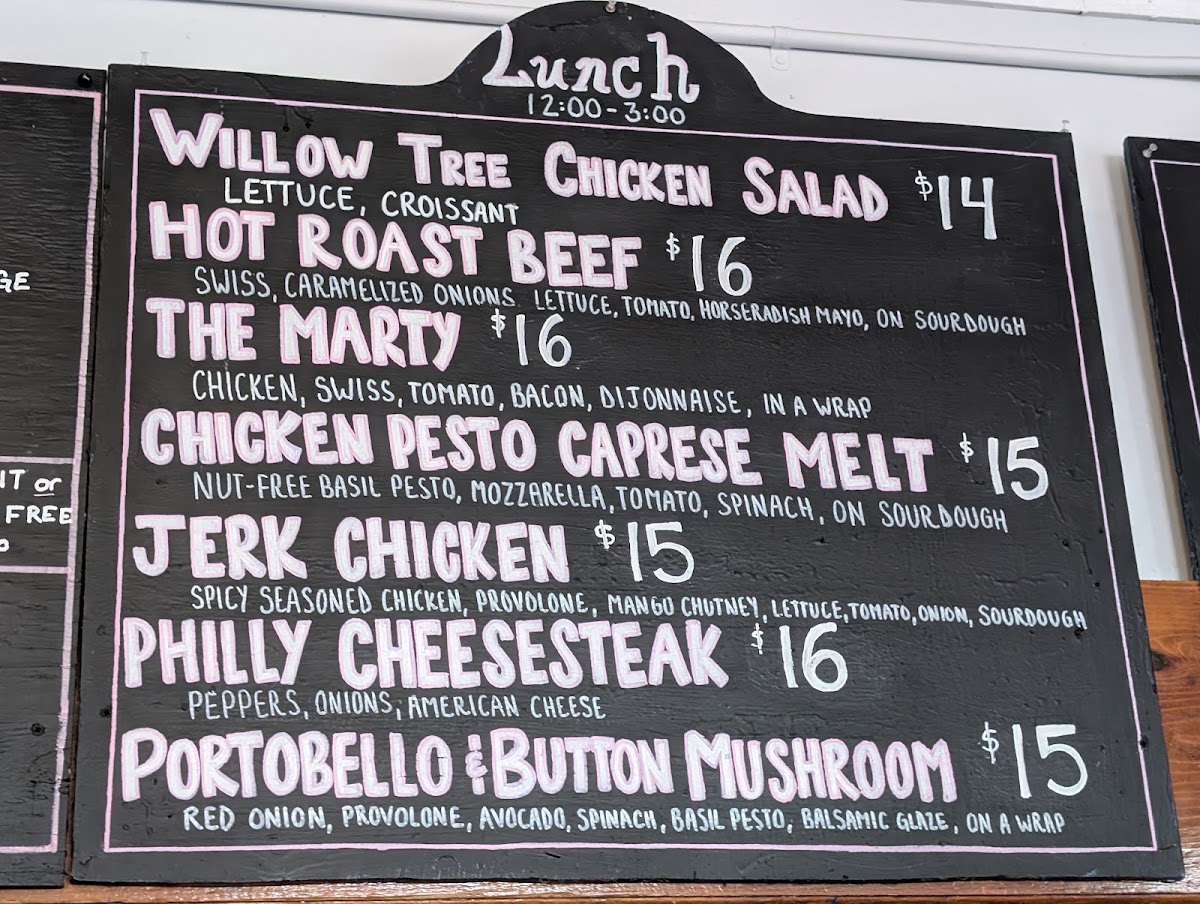 Lunch
12:00-3:00
WILLOW TREE CHICKEN SALAD $14
LETTUCE, CROISSANT
HOT ROAST BEEF $16
SWISS, CARAMELIZED ONIONS LETTUCE, TOMATO, HORSERADISH MAYO, ON SOURDOUGH
THE MARTY $16
CHICKEN, SWISS, TOMATO, BACON, DIJONNAISE, IN A WRAP
CHICKEN PESTO CAPRESE MELT $15
NUT-FREE BASIL PESTO, MOZZARELLA, TOMATO, SPINACH, ON SOURDOUGH
JERK CHICKEN $15
SPICY SEASONED CHICKEN, PROVOLONE, MANGO CHUTNEY, LETTUCE, TOMATO, ONION, SOURDOUGH
PHILLY CHEESESTEAK $16
PEPPERS, ONIONS, AMERICAN CHEESE
PORTOBELLO & BUTTON MUSHROOM $15
RED ONION, PROVOLONE, AVOCADO, SPINACH, BASIL PESTO, BALSAMIC GLAZE, ON A WRAP
GE
IT or
FREE